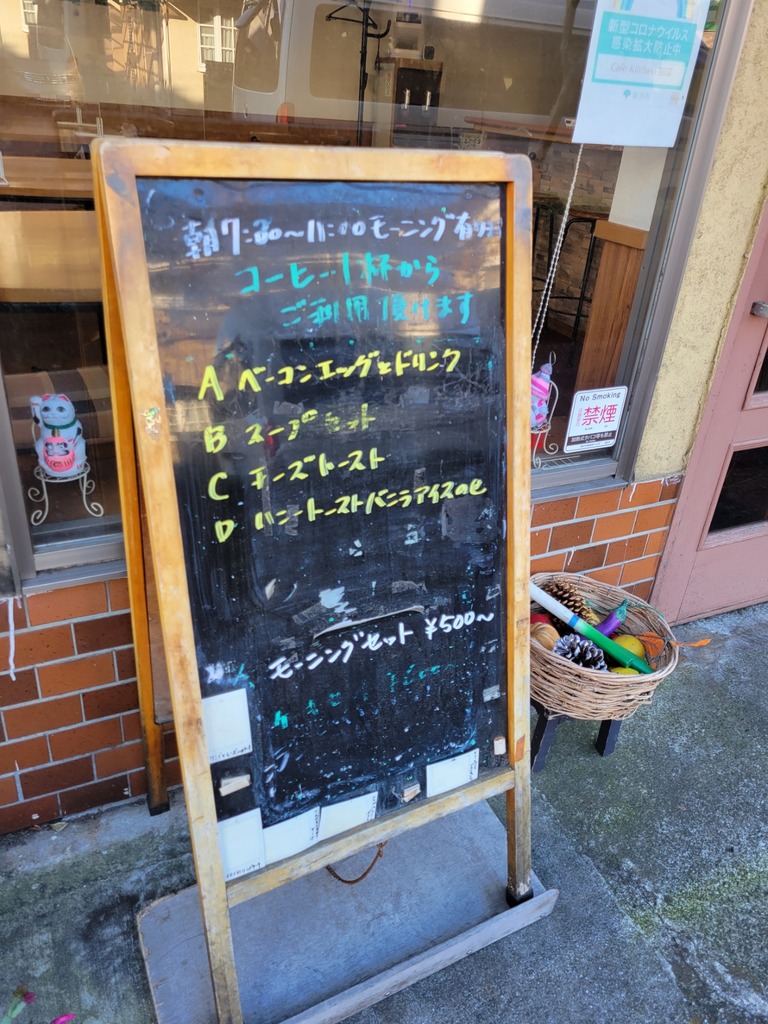 新型コロナウイルス
感染拡大防止中
朝7:30〜11:00モーニング有ります
コーヒー1杯から
ご利用頂けます
A ベーコンエッグとドリンク
B スープセット
C チーズトースト
D ハニートーストバニラアイスのせ
モーニングセット ¥500〜
No Smoking
禁煙